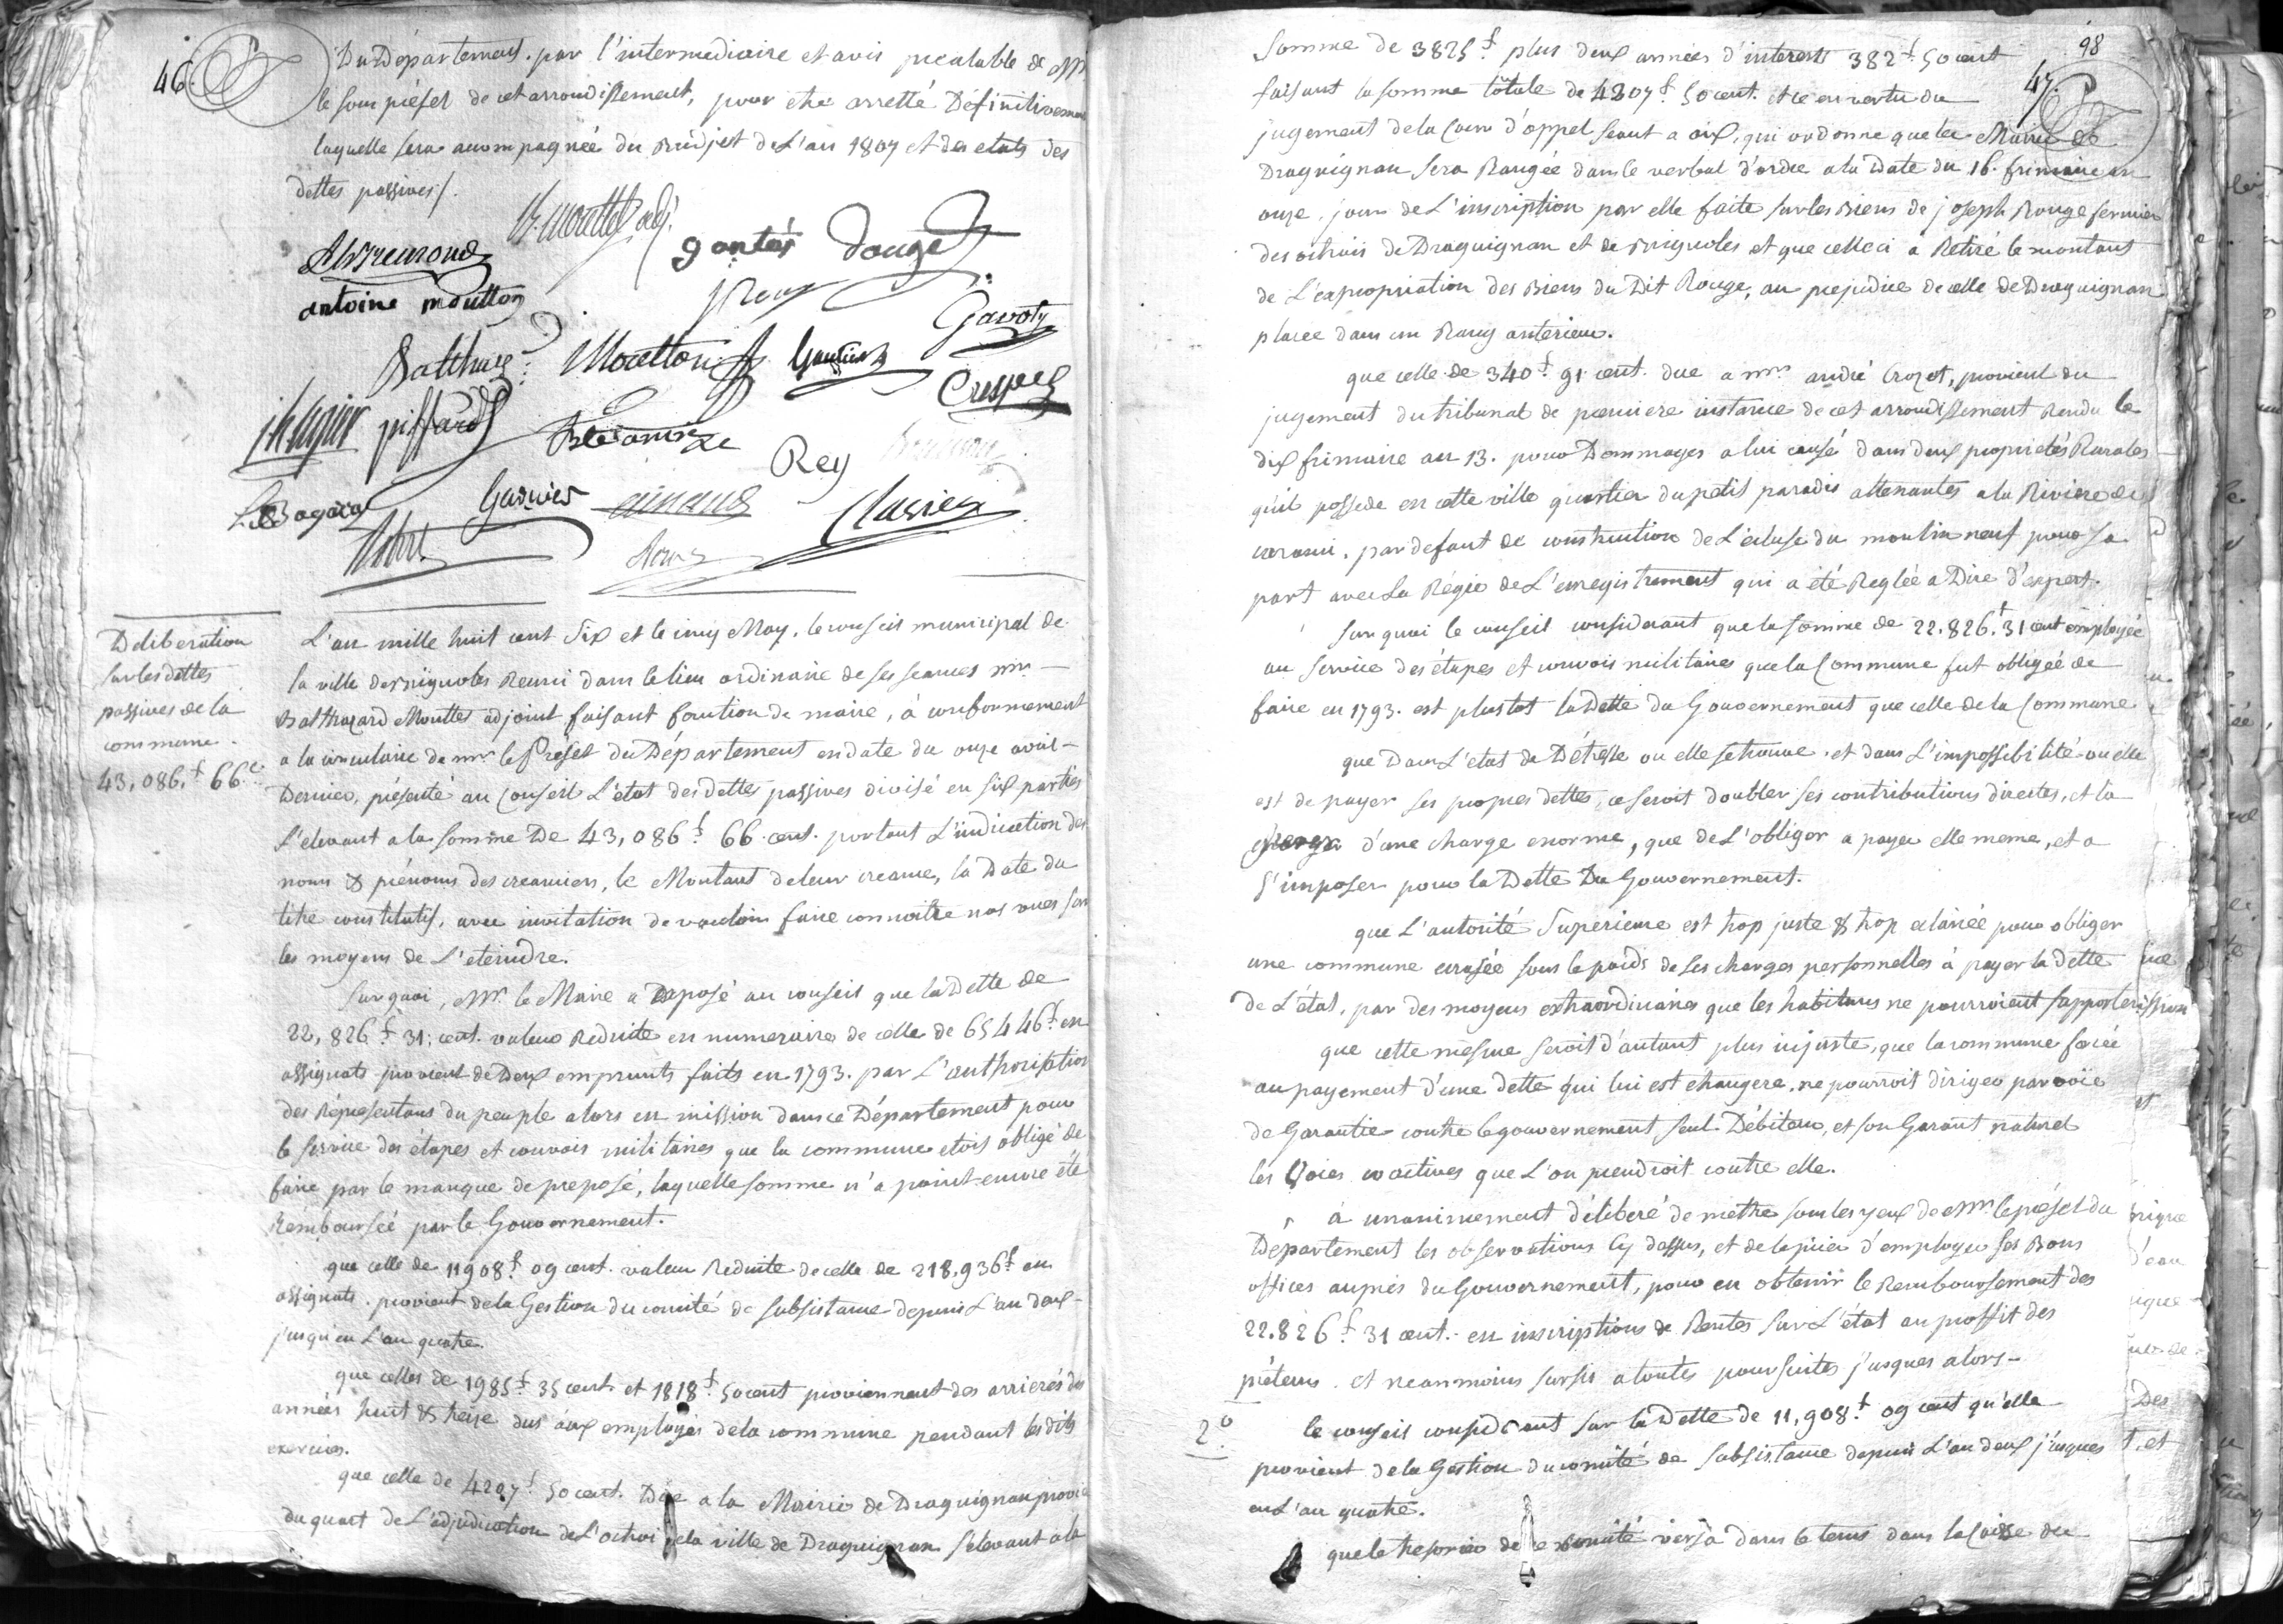 46.
Du Département. par l'intermediaire et avis préalable de Mr
le sous préfet de cet arrondissement, pour etre arretté Définitivement
laquelle sera accompagnée du Budjet de L'an 1807 et des etats des
dettes passives/.
B. mouttet adj.
gantés Douze
antoine moutton
J Roux
Gavoty
Balthaz. Moutton
Crespel
piffard
Rey
Garnier
Clavier
Deliberation
sur les dettes
passives de la
commune.
43,086.f 66c
L'an mille huit cent Six et le cinq May, le conseil municipal de
la ville de Brignoles Reuni dans le lieu ordinaire de ses seances mr
Balthazard Mouttet adjoint faisant fonction de maire, à conformement
a la circulaire de mr le Préfet du Département en date du onze avril
Dernier, présenté au Conseil L'état des dettes passives divisé en six parties
s'élevant a la somme De 43,086f 66 cent. portant L'indication des
noms & prénoms des creanciers, le Montant de leur creance, la Date du
titre constitutif, avec invitation de vouloir faire connoitre nos vues sur
les moyens de L'eteindre.
Surquoi, Mr. le Maire a Exposé au conseil que la Dette de
22,826f 31. cent. valeur Reduite en numeraire de celle de 65446f en
assignats provient de Deux emprunts faits en 1793. par L'authorisation
des Répresentans du peuple alors en mission dans ce Département pour
le service des étapes et convois militaires que la commune etoit obligé de
faire par le manque de preposé, laquelle somme n'a point encore été
Remboursée par le Gouvernement.
que celle de 11908f 09 cent. valeur Reduite de celle de 218,936f en
assignats. provient de la Gestion du comité de subsistance depuis L'an deux
jusqu'en L'an quatre.
que celles de 1985f 35 cent. et 1818f 50 cent proviennent des arrierés des
années huit & treize dus aux employés de la commune pendant les dits
exercices.
que celle de 4207f 50 cent. Due a la Mairie de Draguignan provient
du quart de L'adjudication de L'octroi de la ville de Draguignan s'elevant a la
98
47.
Somme de 3825f plus deux années d'interets 382f 50 cent
faisant la somme totale de 4207f 50 cent. et ce en vertu du
jugement de la Cour d'appel seant a aix, qui ordonne que la Mairie de
Draguignan sera Rangée dans le verbal d'ordre a la Date du 16. frimaire an
onze, jour de L'inscription par elle faite sur les Biens de joseph Rouge fermier
des octrois de Draguignan et de Brignoles et que celle ci a Retiré le montant
de L'expropriation des Biens du Dit Rouge, au prejudice de celle de Draguignan
placée dans un Rang anterieur.
que celle de 340f 91 cent. due a mr andré Crozet, provient du
jugement du tribunal de premiere instance de cet arrondissement Rendu le
dix frimaire an 13. pour Dommages a lui causé dans deux proprietés Rurales
qu'il possede en cette ville quartier du petit paradis attenantes a la Riviere de
carami. par defaut de construction de L'ecluse du moulin neuf pour sa
part avec la Régie de L'enregistrement qui a été Reglée a Dire d'expert.
Sur quoi le conseil considerant que la somme de 22.826.f 31 cent employée
au service des étapes et convois militaires que la Commune fut obligée de
faire en 1793. est plustot la Dette du Gouvernement que celle de la Commune
que Dans L'etat de Détresse ou elle se trouve. et dans L'impossibilité ou elle
est de payer ses propres dettes, ce seroit doubler ses contributions directes, et la
d'une charge enorme, que de L'obliger a payer elle meme, et a
S'imposer pour la Dette Du Gouvernement.
que L'autorité Superieure est trop juste & trop eclairée pour obliger
une commune ecrasée sous le poids de ses charges personnelles à payer la dette
de L'état, par des moyens extraordinaires que les habitans ne pourroient supporter
que cette mesure seroit d'autant plus injuste, que la commune forcée
au payement d'une dette qui lui est etrangere. ne pourroit diriger par voie
de Garantie contre le gouvernement seul Débiteur, et son Garant naturel
les Voies coactives que L'on prendroit contre elle.
à unanimement déliberé de mettre sous les yeux de Mr. le préfet du
Departement les observations Cy dessus, et de le prier d'employer ses Bons
offices auprès du Gouvernement, pour en obtenir le Remboursement des
22.826f 31 cent. en inscriptions de Rentes sur L'état au proffit des
préteurs. et neanmoins sursis a toutes poursuites jusques alors
2o. le conseil considerant sur la Dette de 11,908.f 09 cent qu'elle
provient de la Gestion du comité de subsistance depuis L'an deux jusques
en L'an quatre.
que le tresorier de ce comité versa dans le tems dans la Caisse du